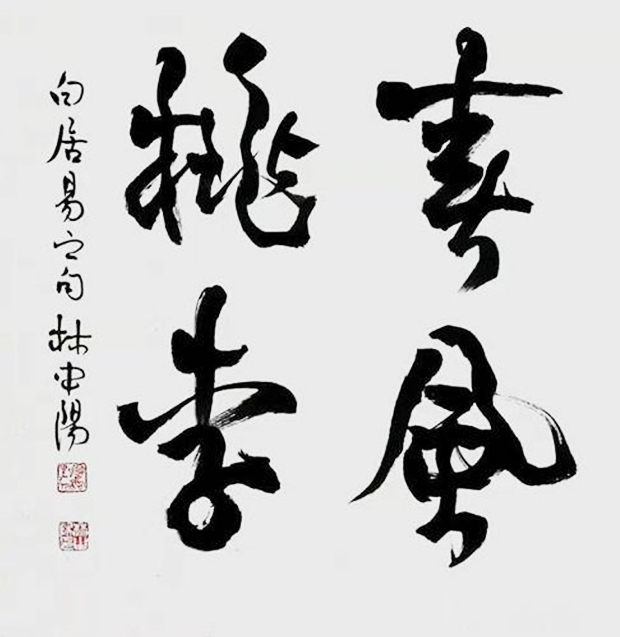 春風
桃李
白居易之句 林中陽